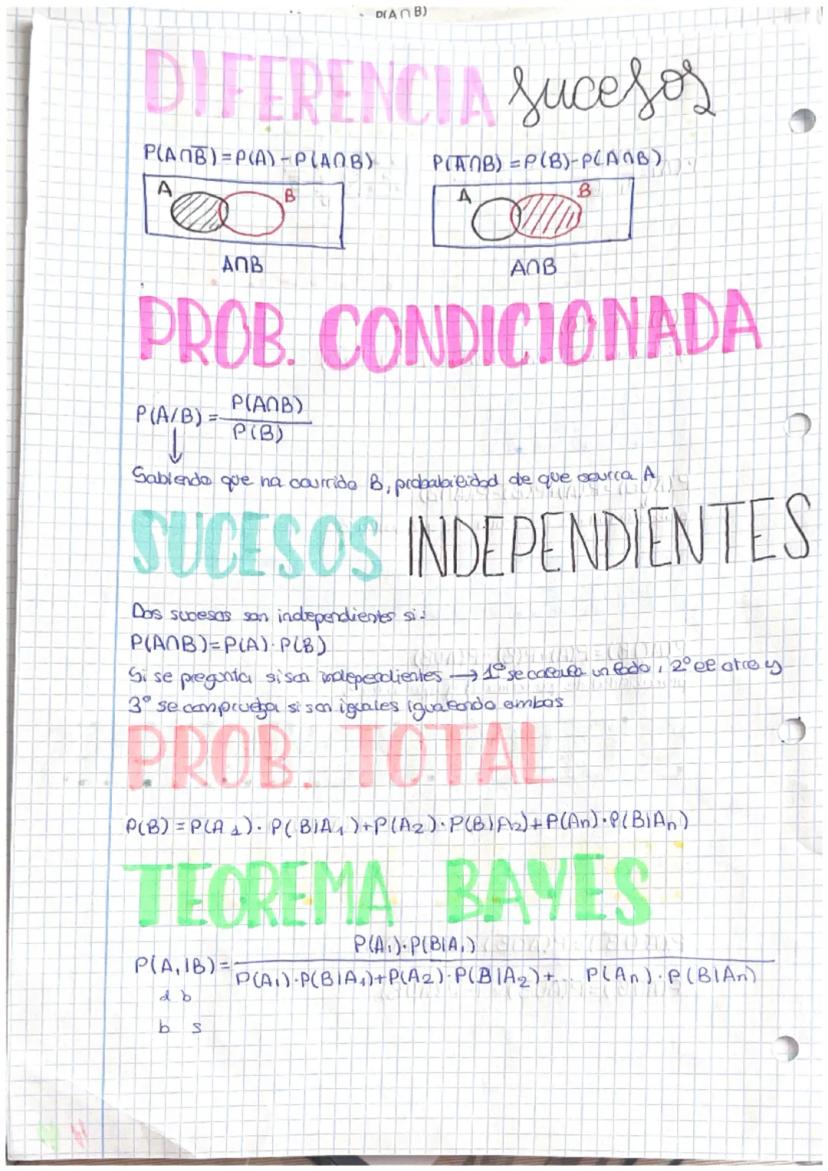 P(A∩B)
DIFERENCIA sucesos
P(A∩B̅)=P(A)-P(A∩B)
P(A̅∩B)=P(B)-P(A∩B)
A B
A B
A∩B
A∩B
PROB. CONDICIONADA
P(A/B)= P(A∩B)
P(B)
↓
Sabiendo que ha ocurrido B, probabilidad de que ocurra A
SUCESOS INDEPENDIENTES
Dos sucesos son independientes si:
P(A∩B)=P(A)·P(B)
Si se pregunta si son independientes → 1º se calcula un lado, 2º el otro y
3º se comprueba si son iguales igualando ambos
PROB. TOTAL
P(B)=P(A1)·P(B|A1)+P(A2)·P(B|A2)+P(An)·P(B|An)
TEOREMA BAYES
P(A1)·P(B|A1)
P(A1|B)=
P(A1)·P(B|A1)+P(A2)·P(B|A2)+... P(An)·P(B|An)
d b
b s